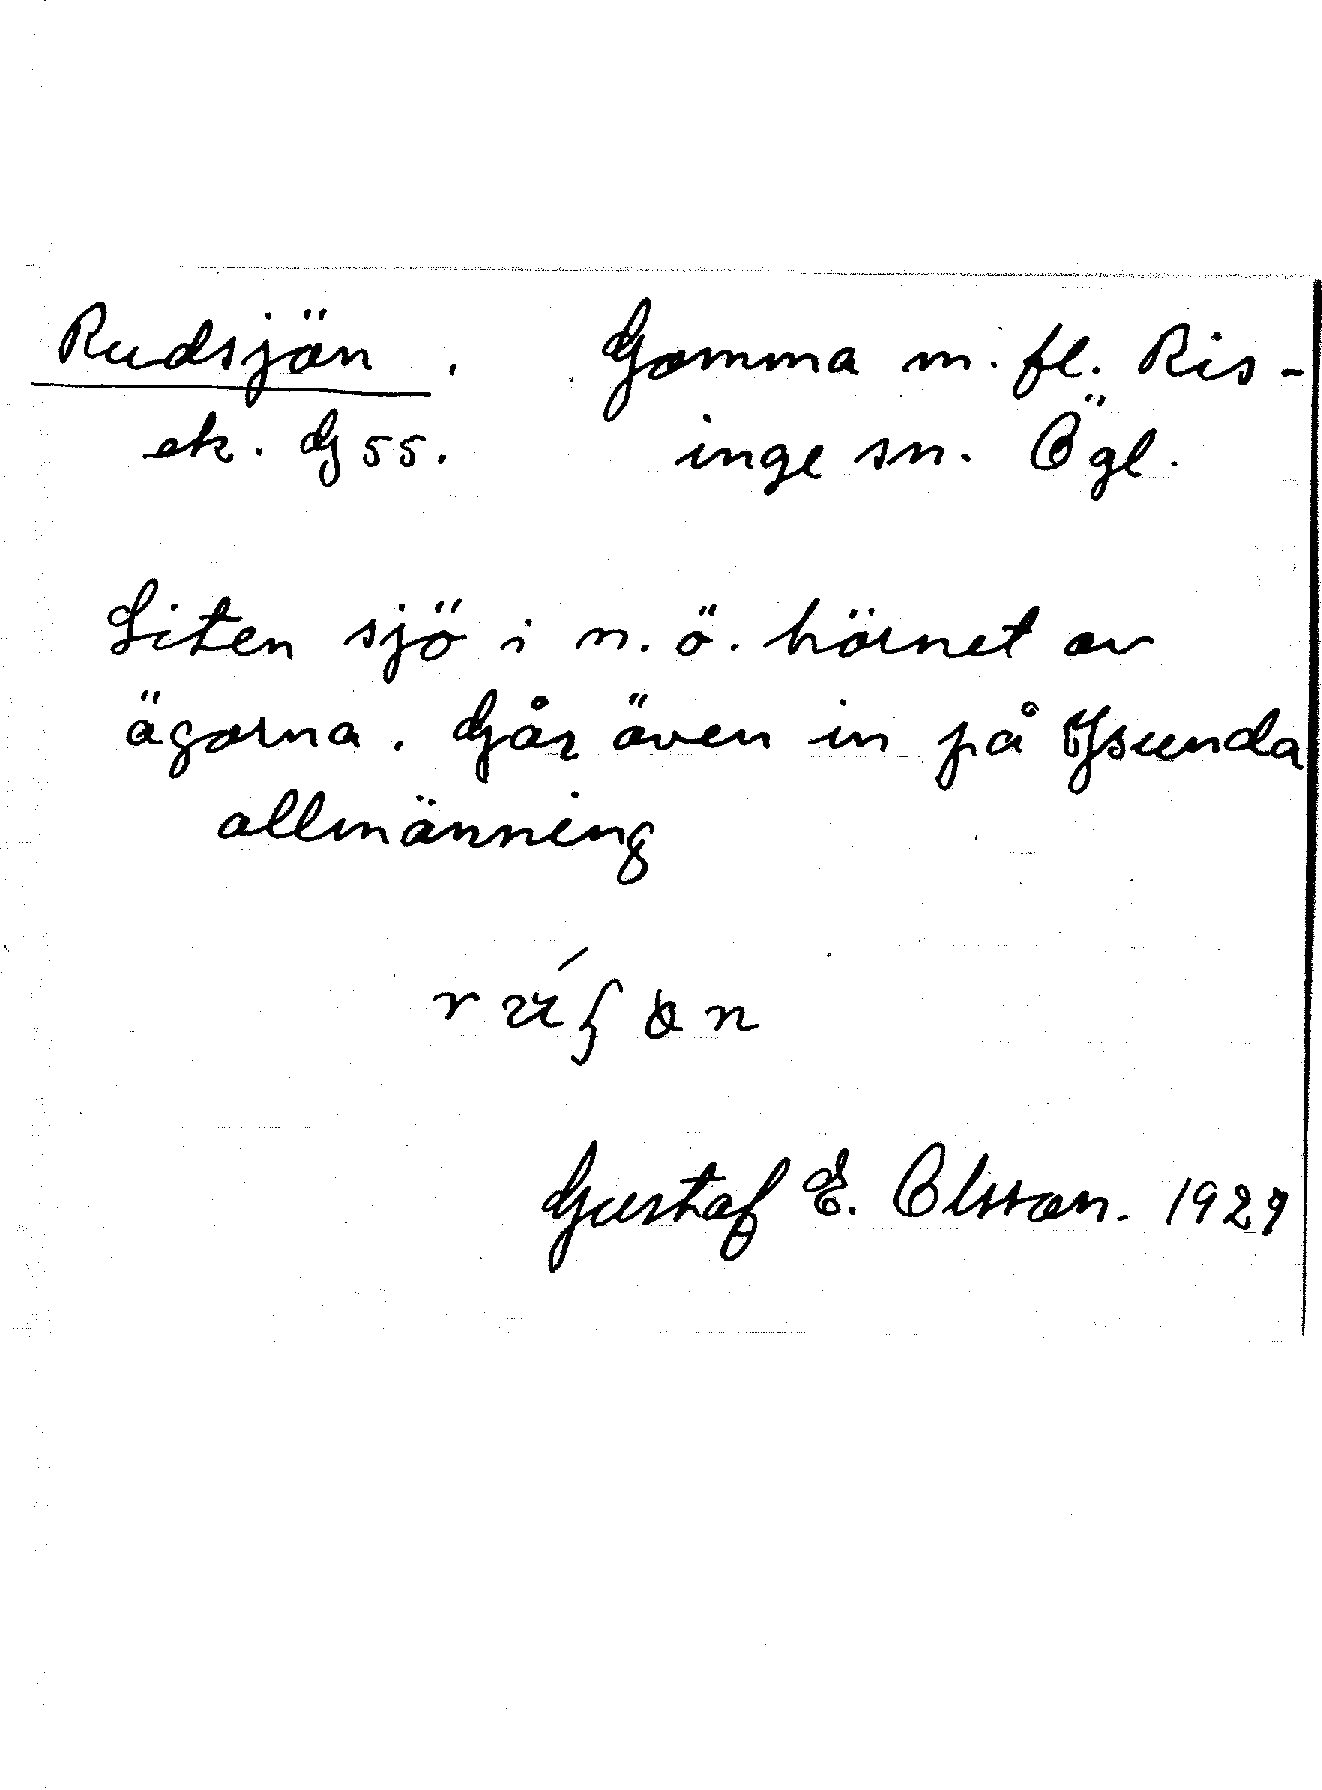 Rudsjön. Gomma m. fl. Ris-
ek. G 55. inge sn. Ögl.
Liten sjö i n. ö. hörnet av
ägorna. Går även in på Ysunda
allmänning
Gustaf E. Olsson. 1929